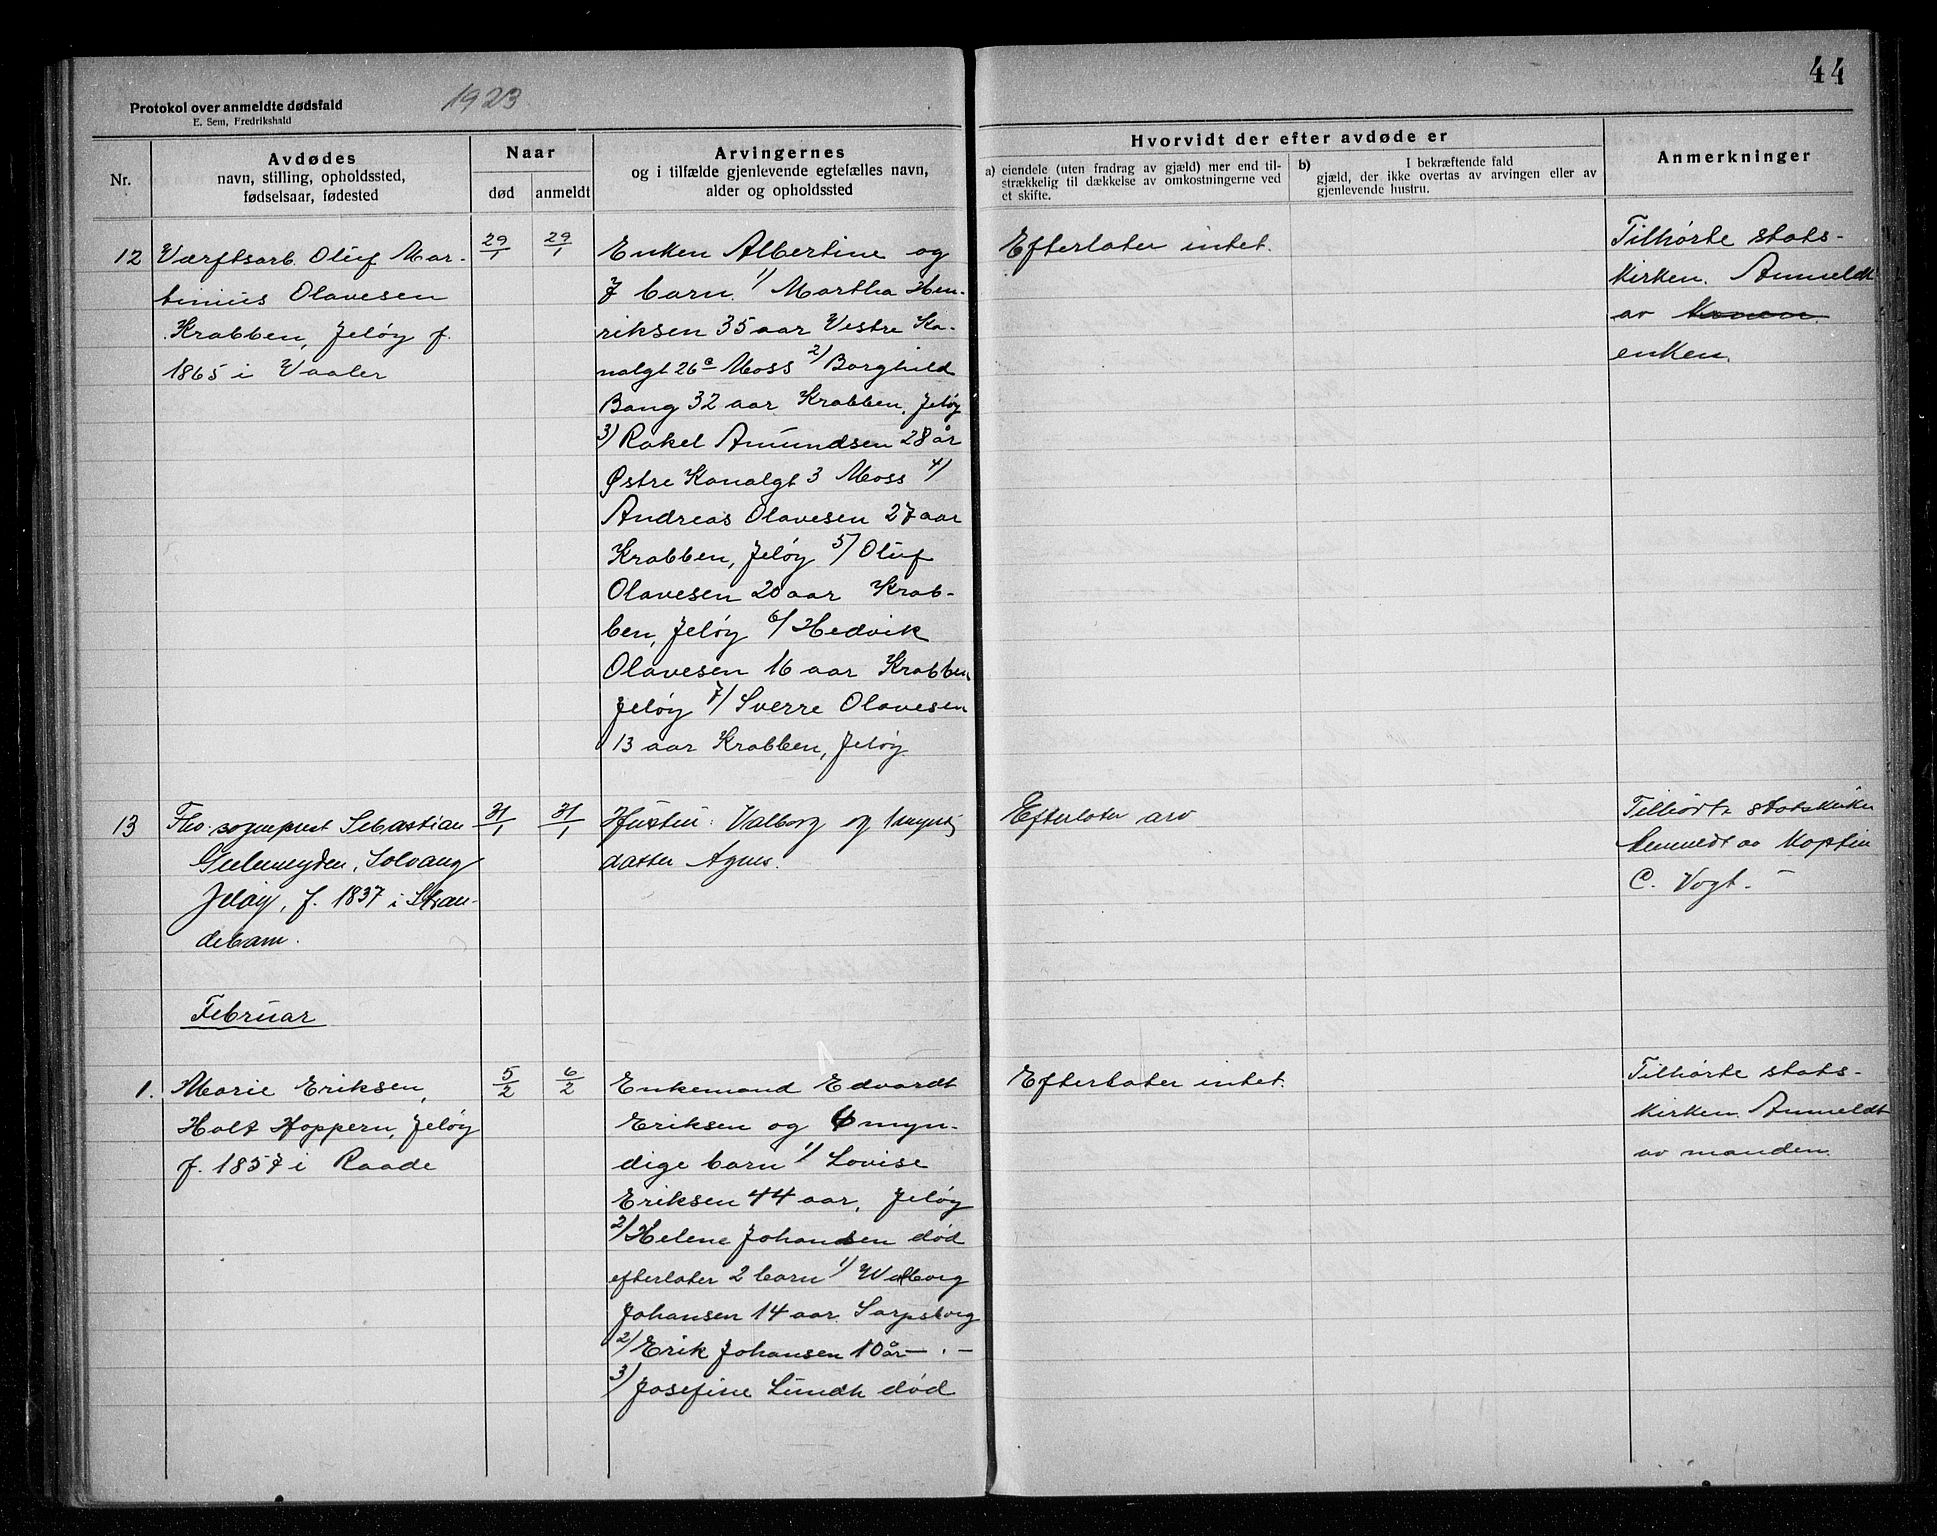 44
Protokol over anmeldte dødsfald
E. Sem, Fredrikshald
1923
Nr.
Avdødes
navn, stilling, opholdssted,
fødselsaar, fødested
Naar
død
anmeldt
Arvingernes
og i tilfælde gjenlevende egtefælles navn,
alder og opholdssted
Hvorvidt der efter avdøde er
a) eiendele (uten fradrag av gjæld) mer end til-
strækkelig til dækkelse av omkostningerne ved
et skifte.
b) I bekræftende fald
gjæld, der ikke overtas av arvingen eller av
gjenlevende hustru.
Anmerkninger
12
Værftsarb. Oluf Mar-
tinius Olavesen
Krabben, Jeløy f.
1865 i Vaaler
29/1
29/1
Enken Albertine og
7 barn. 1/ Martha Hen-
riksen 35 aar Vestre Ka-
nalgt 26a Moss 2/ Borghild
Bang 32 aar Krabben, Jeløy
3/ Rakel Amundsen 28 år
Østre Kanalgt 3 Moss 4/
Andreas Olavesen 27 aar
Krabben, Jeløy 5/ Oluf
Olavesen 20 aar Krab-
ben, Jeløy 6/ Hedvik
Olavesen 16 aar Krabben
Jeløy 7/ Sverre Olavesen
13 aar Krabben, Jeløy
Efterlater intet.
Tilhørte stats-
kirken. Anmeldt
av konen
enken.
13
Fhv. sogneprest Sebastian
Geelmuyden, Solvang
Jeløy, f. 1837 i Stran-
debarm.
31/1
31/1
Hustru: Valborg og myndig
datter Agnes.
Efterlater arv
Tilhørte statskirken
Anmeldt av Kaptein
C. Vogt. -
Februar
1.
Marie Eriksen,
Holt Hoppern, Jeløy
f. 1857 i Raade
5/2
6/2
Enkemand Edvardt
Eriksen og 6 myn-
dige barn 1/ Lovise
Eriksen 44 aar, Jeløy
2/ Helene Johansen død
efterlater 2 barn 1/
Johansen 14 aar Sarpsborg
2/ Erik Johansen 10 år - . -
3/ Josefine Lundh død
Efterlater intet.
Tilhørte stats-
kirken. Anmeldt
av manden.